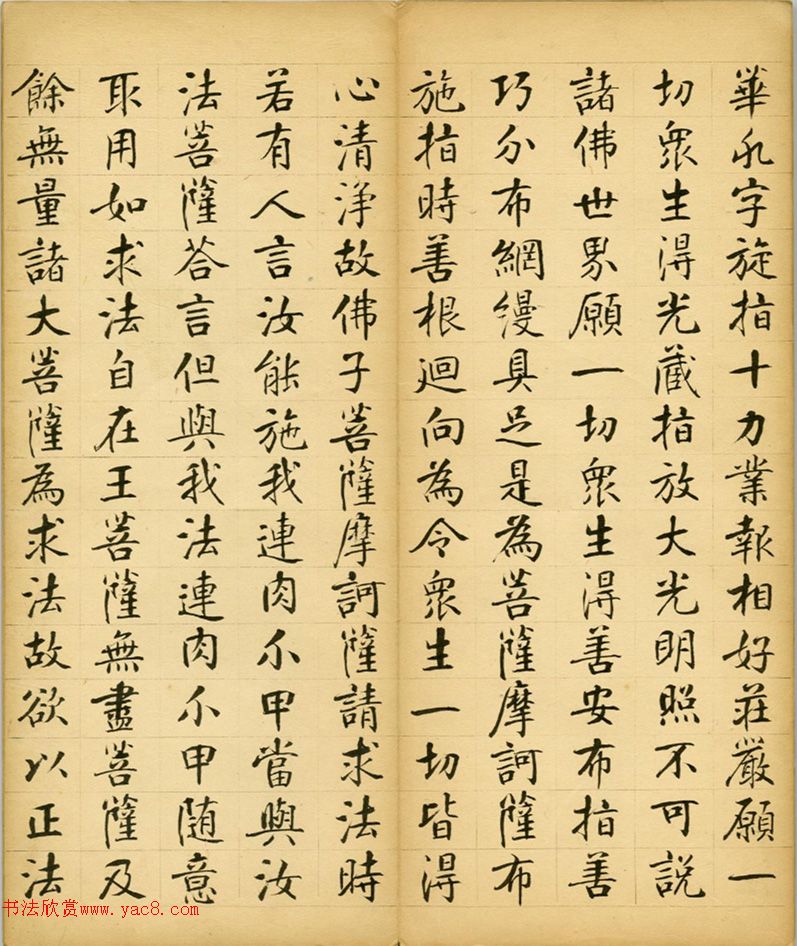 華字旋指十力業報相好莊嚴願一
切衆生得光藏指放大光明照不可説
諸佛世界願一切衆生得善安布指善
巧分布網縵具足是為菩薩摩訶薩布
施指時善根迴向為令衆生一切皆得
心清淨故佛子菩薩摩訶薩請求法時
若有人言汝能施我連肉爪甲當與汝
法菩薩荅言但與我法連肉爪甲随意
取用如求法自在王菩薩無盡菩薩及
餘無量諸大菩薩為求法故欲以正法
书法欣赏www.yac8.com